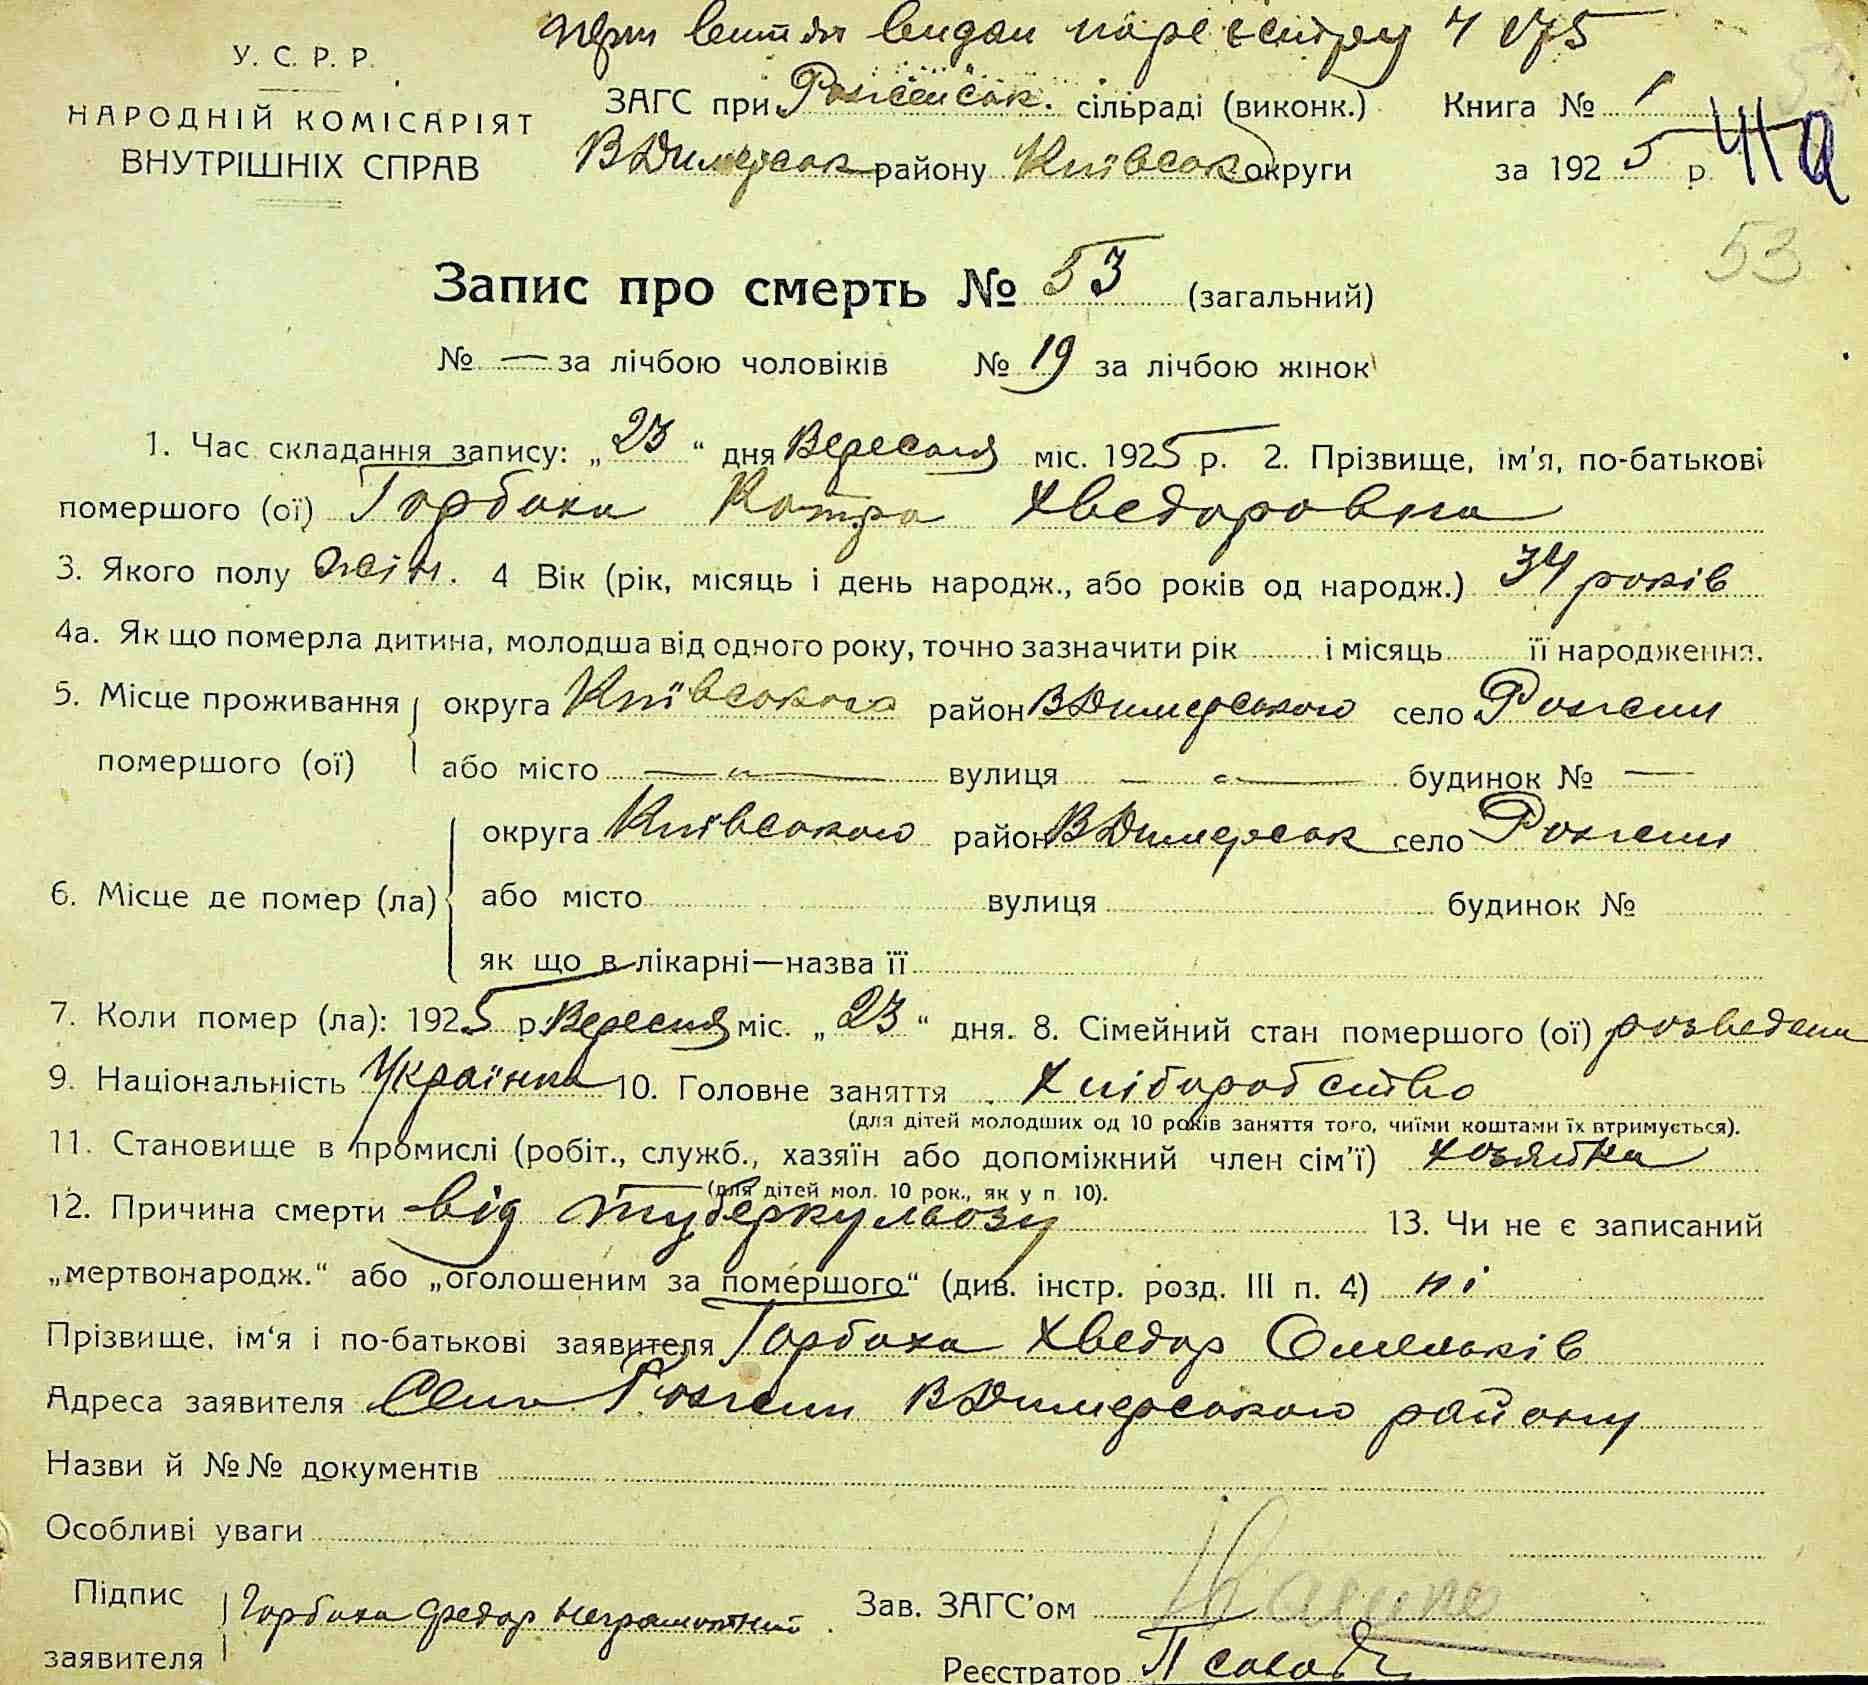 видан по реєстру Ч 175
У. С. Р. Р.
НАРОДНІЙ КОМІСАРІЯТ
ВНУТРІШНІХ СПРАВ
ЗАГС при сільраді (виконк.) Книга № 1
ВДимерськ району Київськ округи за 1925 р.
53
Запис про смерть № 53 (загальний)
№ — за лічбою чоловіків № 19 за лічбою жінок
1. Час складання запису: „23“ дня Вересня міс. 1925 р. 2. Прізвище, ім'я, по-батькові
помершого (ої) Горбаха Катра Хведоровна
3. Якого полу жін. 4 Вік (рік, місяць і день народж., або років од народж.) 34 років
4а. Як що померла дитина, молодша від одного року, точно зазначити рік і місяць її народження.
5. Місце проживання округа Київського район ВДимерського село Рожени
помершого (ої) або місто — „ — вулиця — „ — будинок № —
округа Київського район ВДимерськ село Рожени
6. Місце де помер (ла) або місто вулиця будинок №
як що в лікарні—назва її
7. Коли помер (ла): 1925 р. Вересня міс. „23“ дня. 8. Сімейний стан помершого (ої) розведена
9. Національність Українка 10. Головне заняття Хліборобство
(для дітей молодших од 10 років заняття того, чиїми коштами їх втримується).
11. Становище в промислі (робіт., служб., хазяїн або допоміжний член сім'ї) хозяйка
(для дітей мол. 10 рок., як у п 10).
12. Причина смерти від туберкульозу 13. Чи не є записаний
„мертвонародж.“ або „оголошеним за помершого“ (див. інстр. розд. III п. 4) ні
Прізвище, ім'я і по-батькові заявителя Горбаха Хведор Омельків
Адреса заявителя Село Рожени ВДимерського району
Назви й №№ документів
Особливі уваги
Підпис
заявителя Горбаха Федор неграмотний
Зав. ЗАГС'ом
Реєстратор